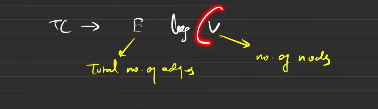 TC → E log V
Total no. of edges
no. of nods